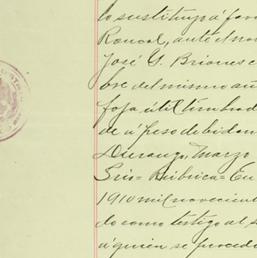 lo sustituyó á favo
Roncal, ante el no
José G. Briones e
bre del mismo añ
foja útil timbrad
de á peso debidam
Durango, Marzo
Srio = Rúbrica = En
1910 mil novecient
do como testigo al s
á quien se procedi